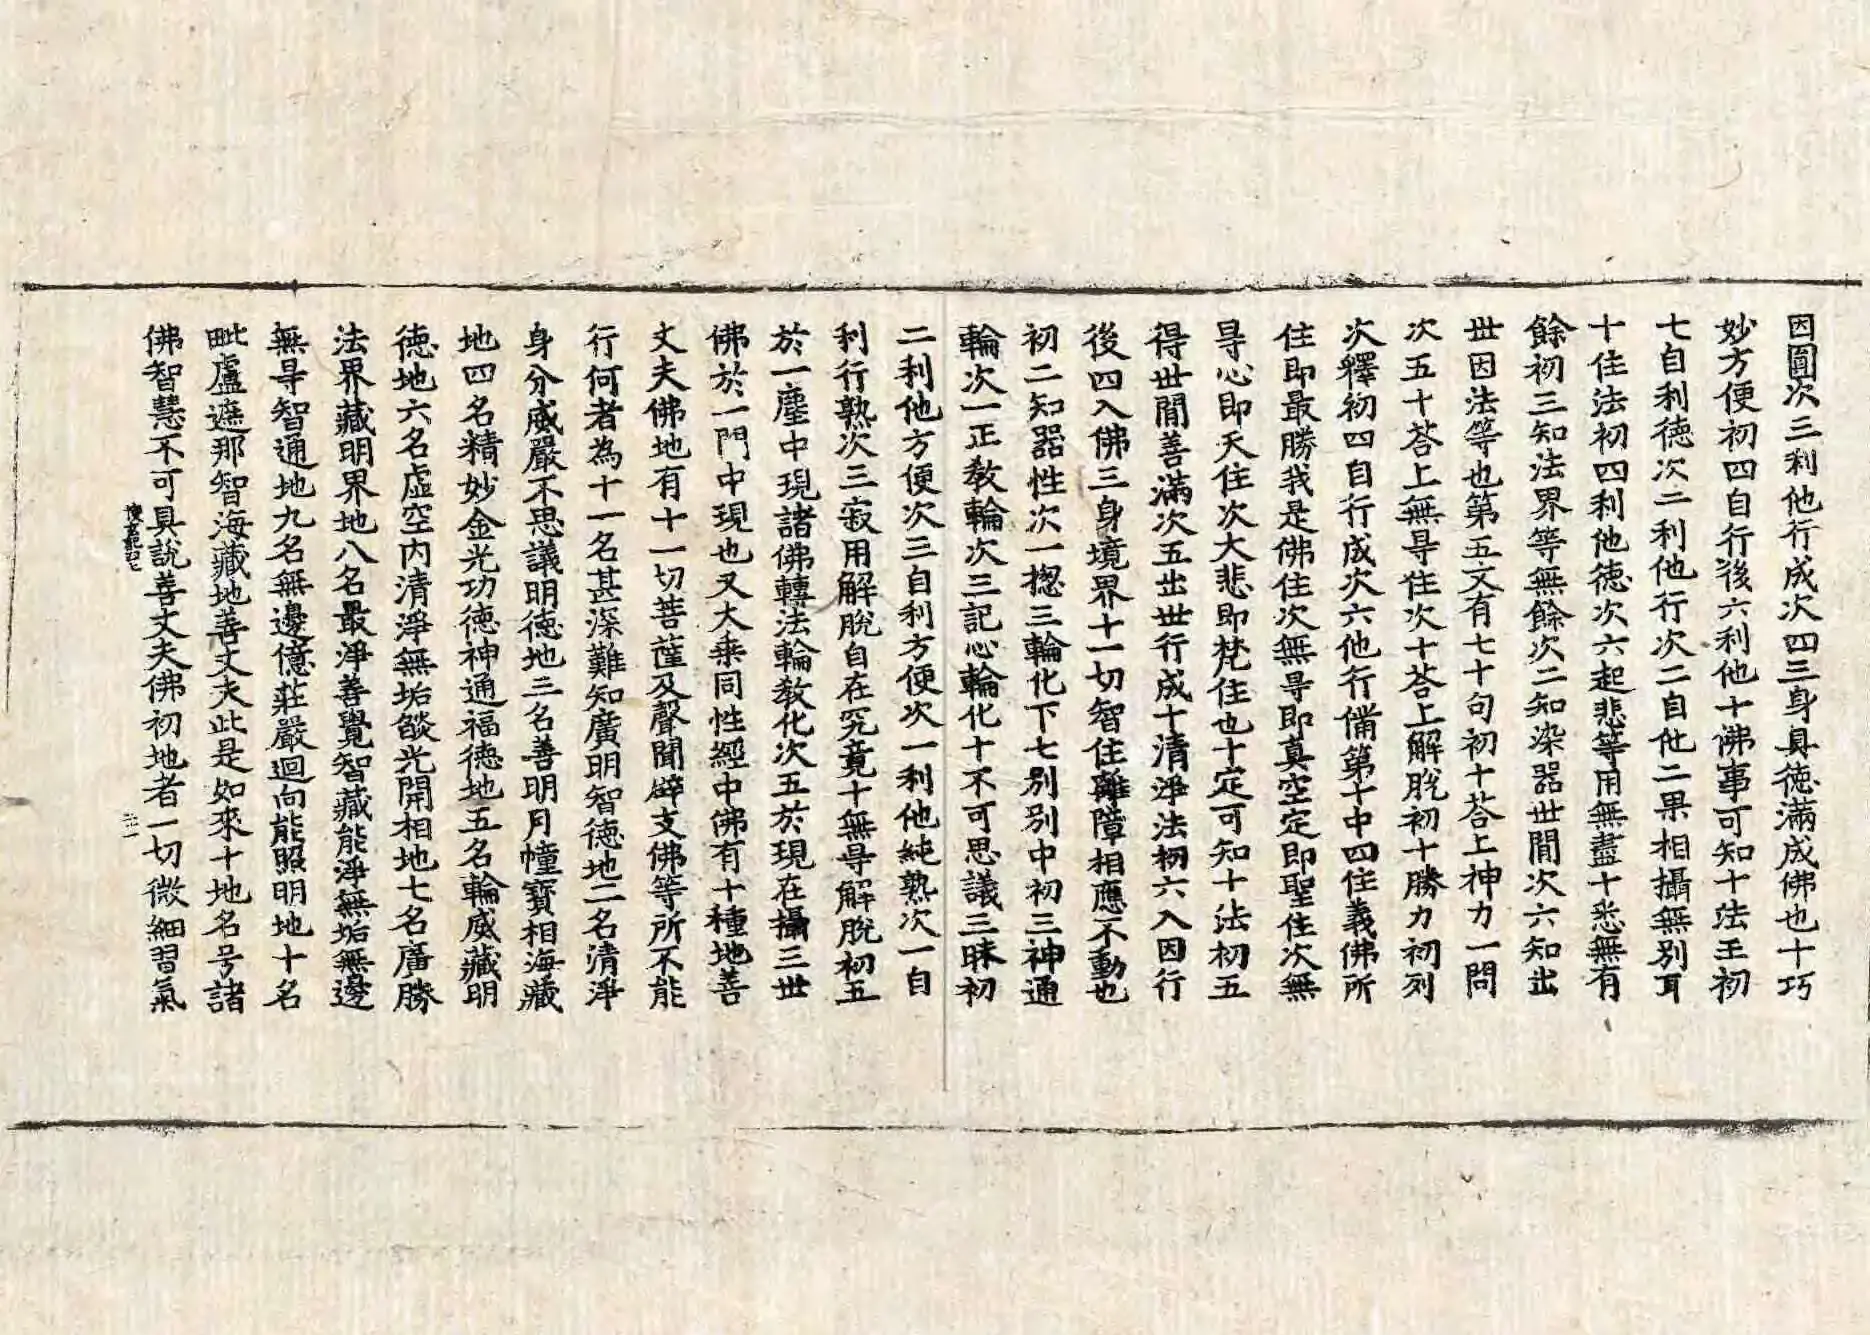 因圓次三利他行成次四三身具德滿成佛也十巧
妙方便初四自行後六利他十佛事可知十法王初
七自利德次二利他行次二自他二果相攝無別耳
十住法初四利他德次六起悲等用無盡十悉無有
餘初三知法界等無餘次二知染器世間次六知出
世因法等也第五文有七十句初十荅上神力一問
次五十荅上無㝵住次十荅上解脫初十勝力初列
次釋初四自行成次六他行備第十中四住義佛所
住即最勝我是佛住次無㝵即真空定即聖住次無
㝵心即天住次大悲即梵住也十定可知十法初五
得世間善滿次五出世行成十清淨法初六入因行
後四入佛三身境界十一切智住離障相應不動也
初二知器性次一揔三輪化下七別別中初三神通
輪次一正教輪次三記心輪化十不可思議三昧初
二利他方便次三自利方便次一利他純熟次一自
利行熟次三寂用解脫自在究竟十無㝵解脫初五
於一塵中現諸佛轉法輪教化次五於現在攝三世
佛於一門中現也又大乘同性經中佛有十種地善
丈夫佛地有十一切菩薩及聲聞辟支佛等所不能
行何者為十一名甚深難知廣明智德地二名清淨
身分威嚴不思議明德地三名善明月幢寶相海藏
地四名精妙金光功德神通福德地五名輪威藏明
德地六名虛空內清淨無垢𦦨光開相地七名廣勝
法界藏明界地八名最淨善覺智藏能淨無垢無邊
無㝵智通地九名無邊億莊嚴迴向能照明地十名
毗盧遮那智海藏地善丈夫此是如來十地名号諸
佛智慧不可具說善丈夫佛初地者一切微細習氣